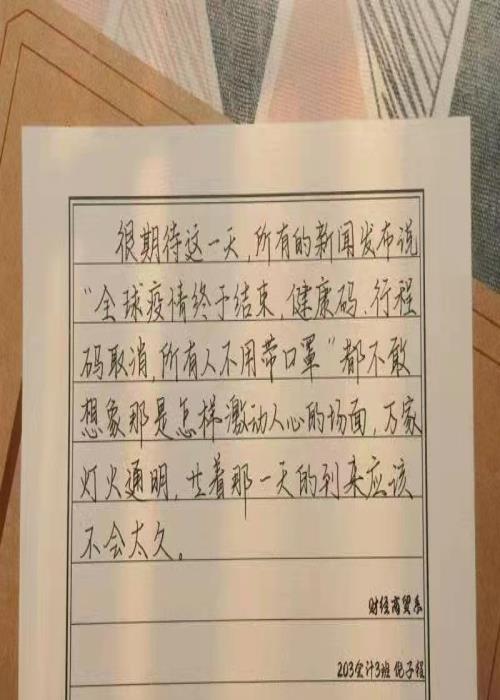 很期待这一天,所有的新闻发布说
“全球疫情终于结束,健康码、行程
码取消,所有人不用带口罩”都不敢
想象那是怎样激动人心的场面,万家
灯火通明,世着那一天的到来应该
不会太久。
财经商贸系
203会计3班 倪子程